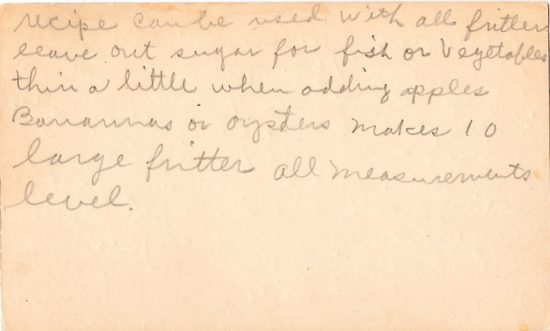 recipe can be used with all fritters
leave out sugar for fish or Vegetables
thin a little when adding apples
Banannas or oysters makes 10
large fritter all measurements
level.